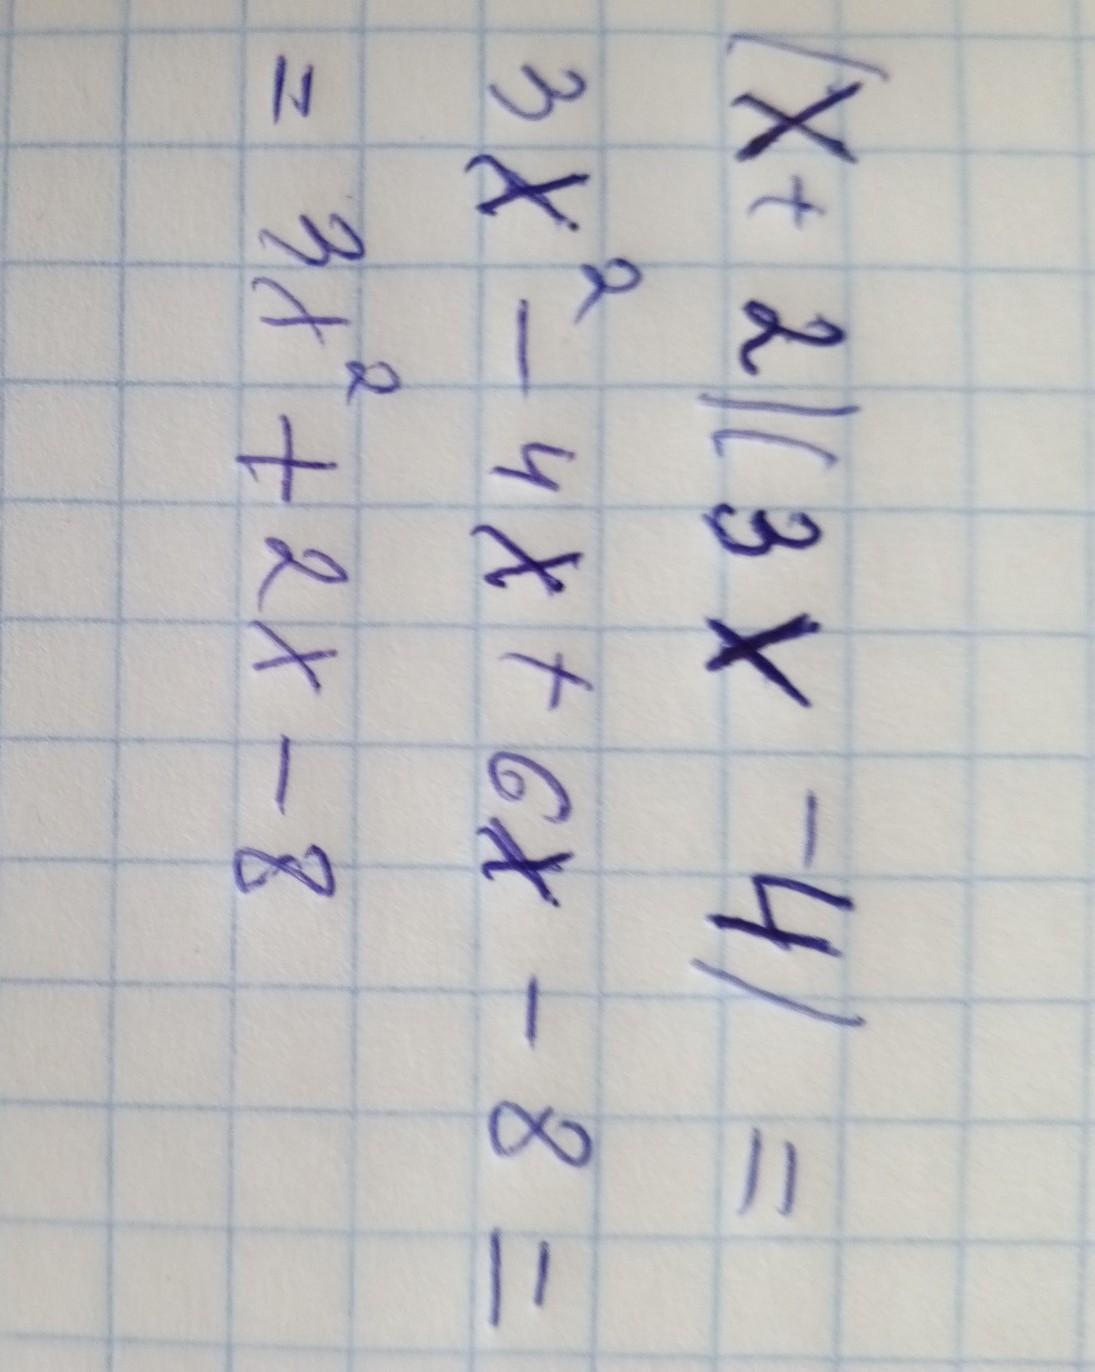 (x+2)(3x-4)=
3x²-4x+6x-8=
=3x²+2x-8